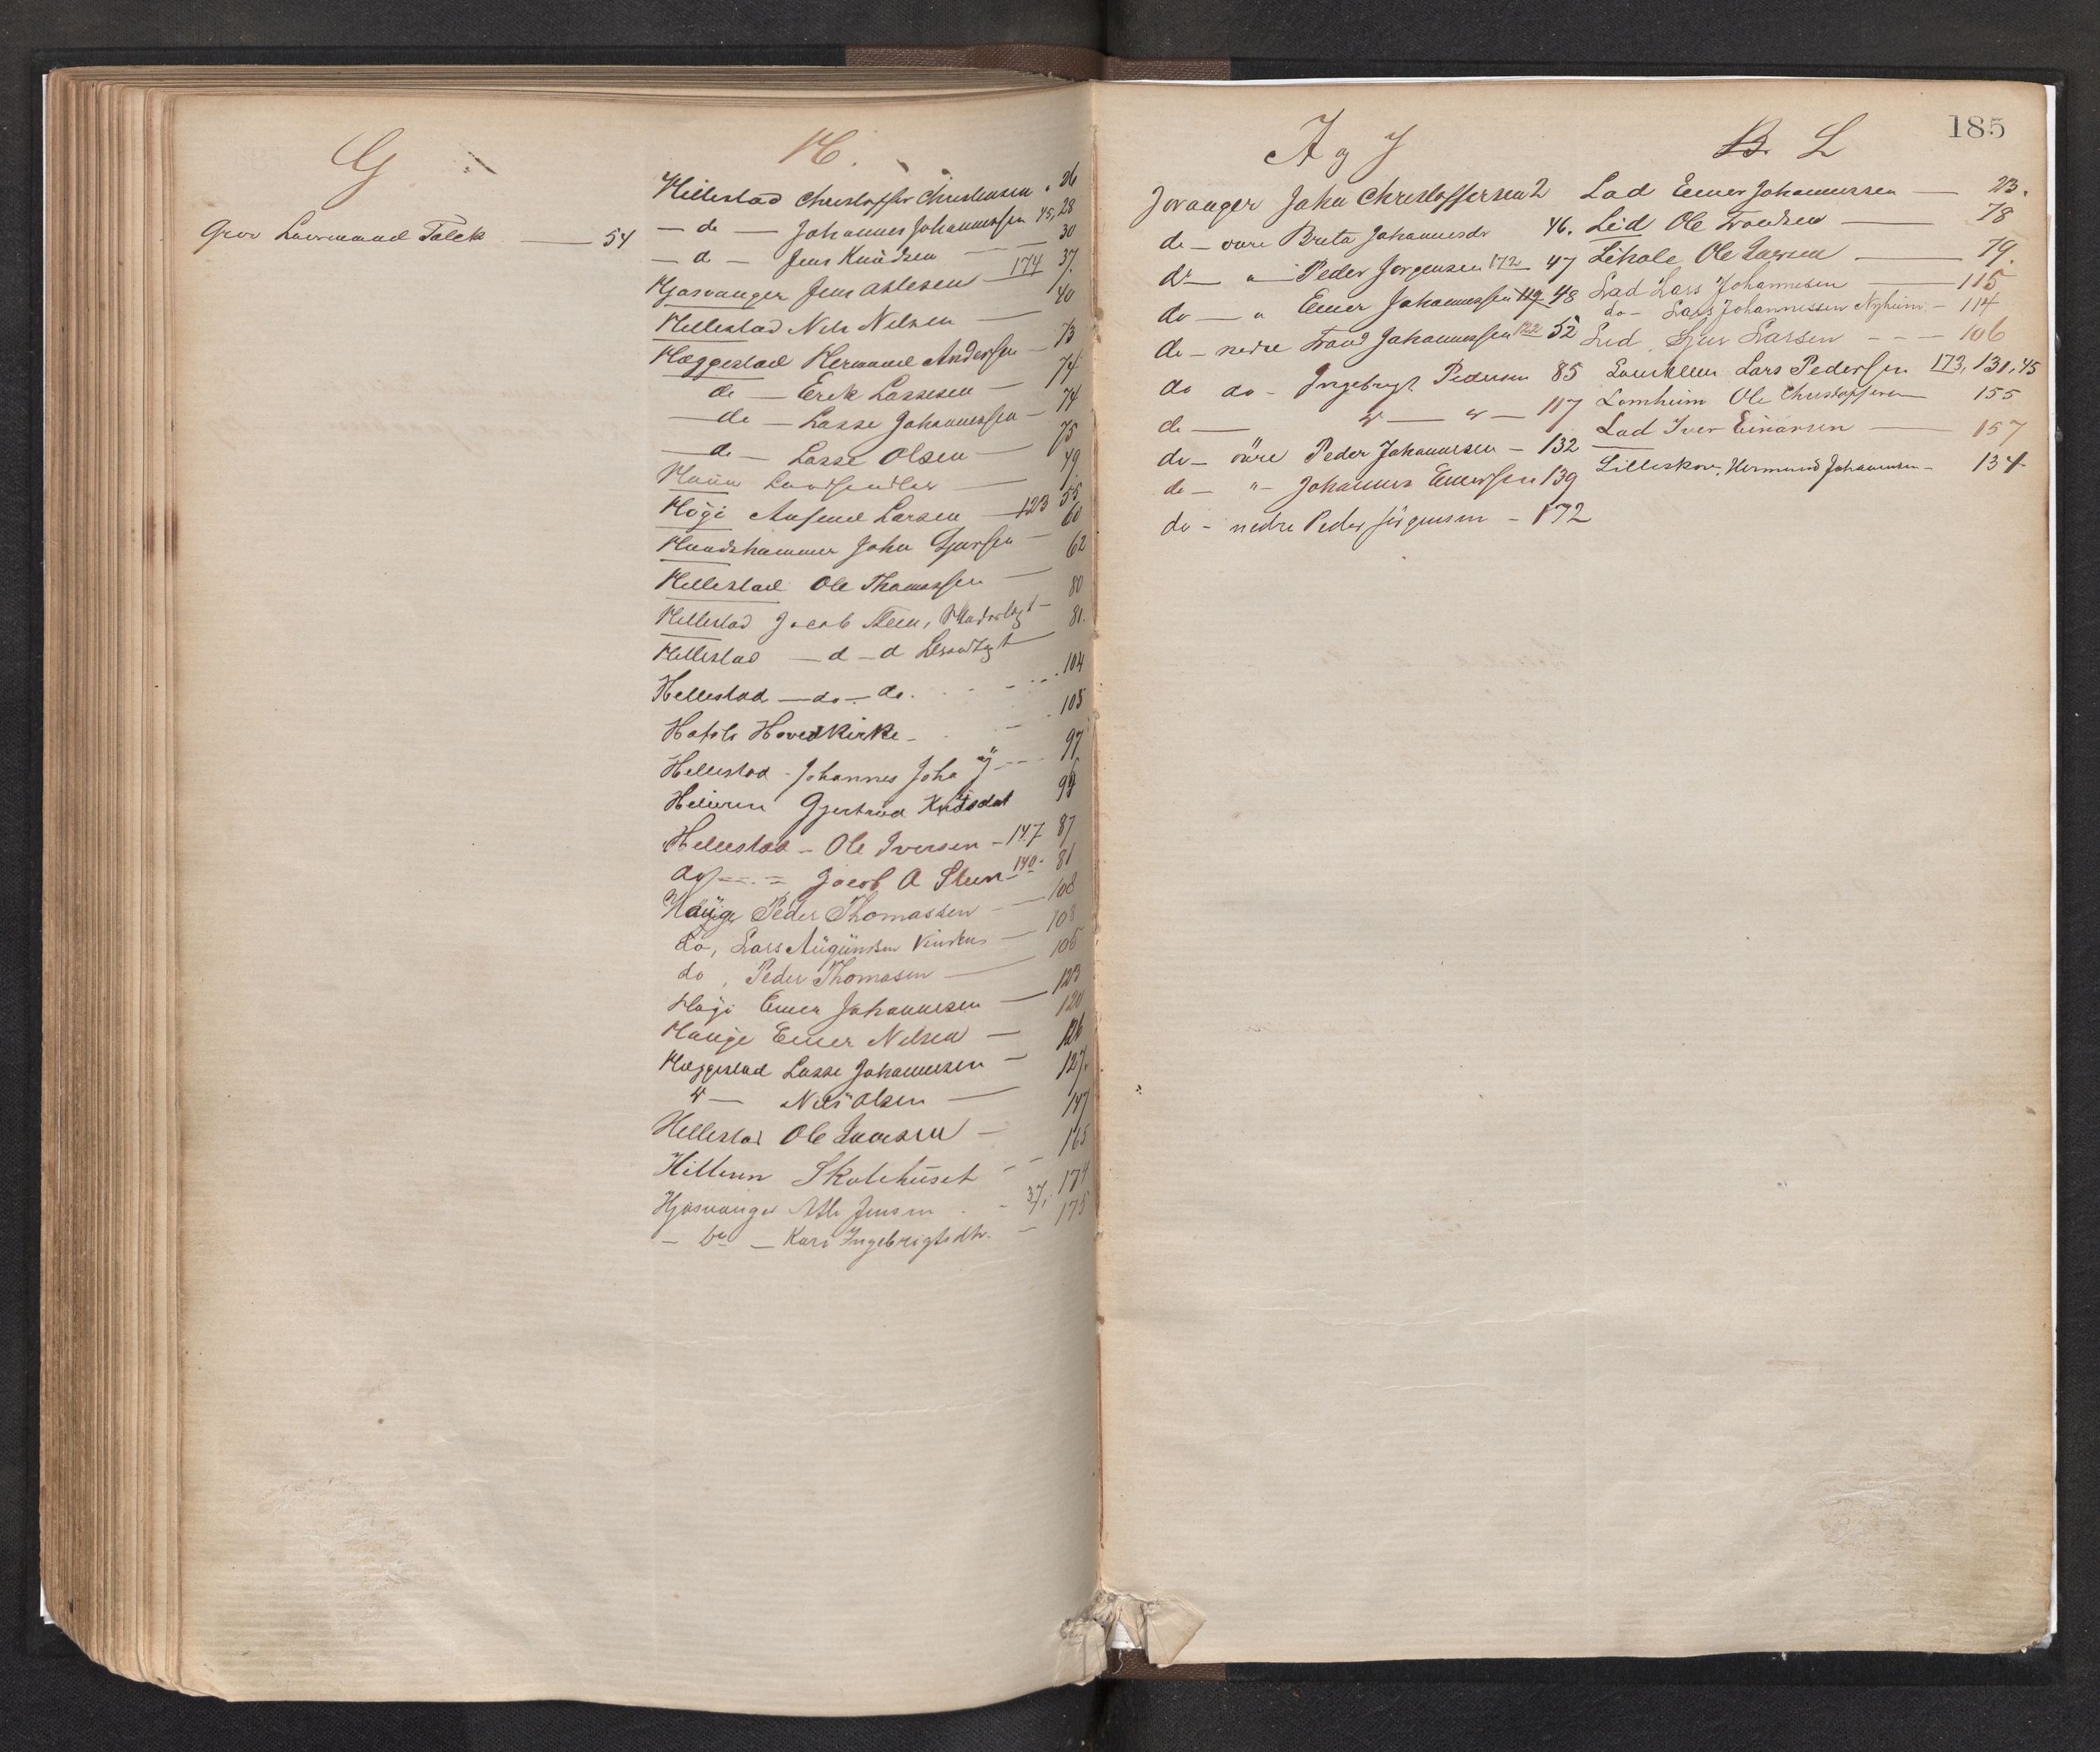 G
Grov Lavrmand Falck — 54
H.
Hillestad Christoffer Christensen " 26
— do — Johannes Johannessen 45, 28
— d — Jens Knudsen — 30
Hjosvanger Jens Atlesen — 174 37.
Hillestad Nils Nilsen — 40
Hæggestad Hermund Andersen — 73
do — Erik Lassesen — 74
— do — Lasse Johannessen — 74
— do — Lasse Olsen — 75
Haug — 49
Högi Larsen — 123 55
60
Hundshammer John Sjursen — 62
Hellestad Ole Thomassen —
Hellestad Jacob Steen, — 80
Hellestad — d — d — 81.
Hellestad — do — do. 104
Hafslo Hovedkirke — 105
Hellestad - Johannes Joha 97
Heltern Gjertrud Knutsdat
Hellestad - Ole Iversen - 147 87
do — Jacob A Steen 140- 81
Hauge Peder Thomassen — 108
do, Lars Augundsen — 108
do, Peder Thomasen — 105
Högi Einer Johannesen — 123
Hauge Einer Nilsen — 120
Hæggestad Lasse Johannesen — 126
" — Nils Olsen — 127.
Hellestad Ole Iversen — 147
Hilleren Skolehuset — 165
Hjøsvanger Atle Jensen - 37, 174
— do — Kari Ingebrigtsdtr. — 175
I og J
Joranger John Christoffersen 2
do — övre Brita Johannesdr 46.
do — " Peder Jørgensen 172 47
do — " Einer Johannessen 119 48
do — nedre Trond Johannessen 122 52
do do - Ingebrigt Pedersen 85
do — " — " — 117
do — övre Peder Johannesen — 132
do — "- Johannes Einersen 139
do - nedre Peder Jörgensen - 172
185
B. L
Lad Einer Johannessen — 23.
Lid Ole Trondsen — 78
Lihole Ole Larsen — 79.
Lad Lars Johannesen — 115
do - Lars Johannessen Nyheim - 114
Lid, Sjur Larsen - - — 106
Lars Pedersen 173, 131, 45
Lomheim Ole Christoffersen 155
Lad Iver Einarsen — 157
Lilleskov, Hermund Johannesen - 134